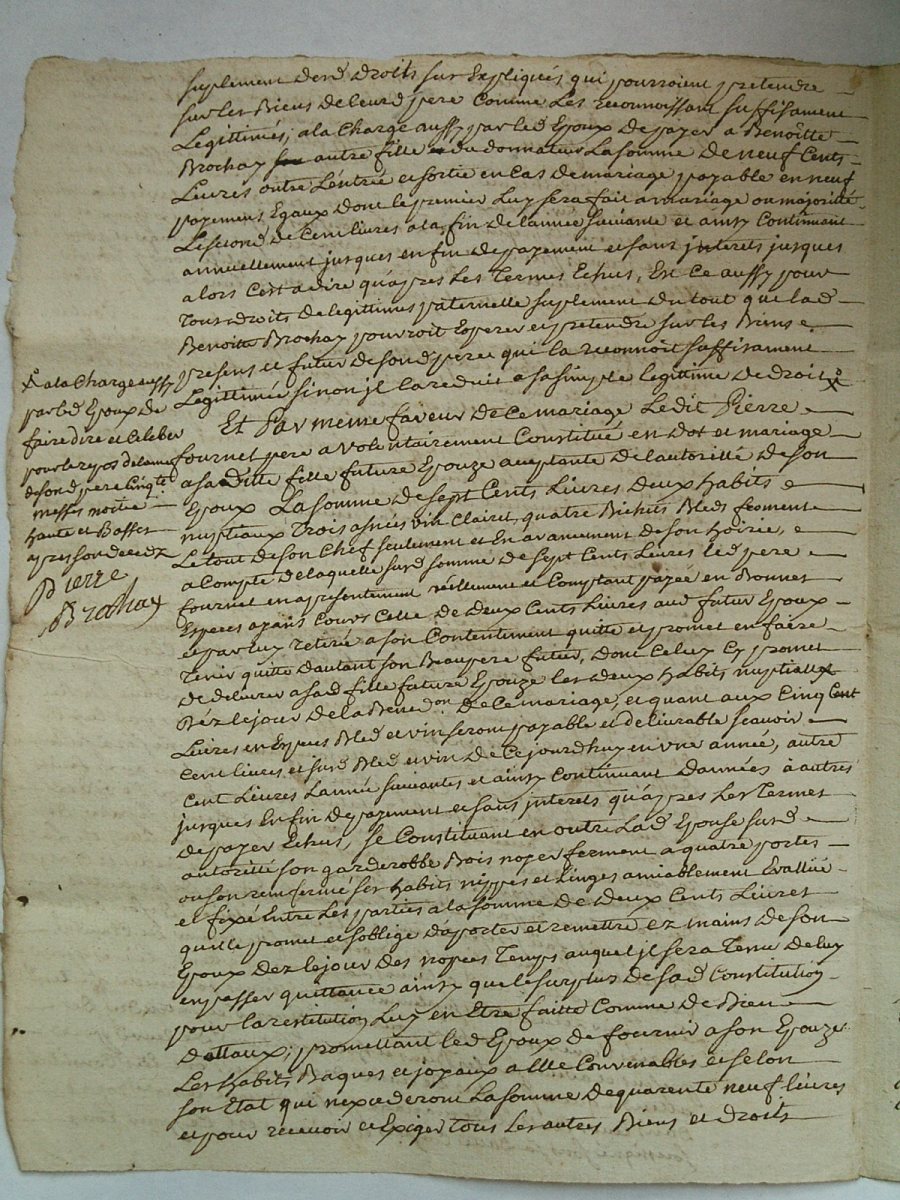 suplement desd droits sus Expliqués, qui pourroient pretendre
sur les Biens de leurd pere Comme Les reconnoissant suffisament
Legittimés; a la Charge aussy par led Epoux de payer a Benoitte
Brochay autre fille du donnateur La somme de neuf Cents
Livres outre L'entrée et sortie en Cas de mariage payable en neuf
payemens Egaux dont le premier Luy sera fait a mariage ou majorité
Le second de Cent livres a la fin de l'année suivante et ainsy Continuant
annuellement jusques en fin de payement et sans jnterets jusques
alors C'est a dire qu'apres Les Termes Echus, Est Ce aussy pour
Tous droits de legitimes paternelle suplement du tout que lad
Benoitte Brochay pourroit Esperer et pretendre sur les Biens
presens et futur de sond pere qui la reconnoit suffisament
Legittimée sinon jl la reduit a sa simple legittime de droit
Et Par meme faveur de Ce mariage Ledit Pierre
fournet pere a volontairement Constitué en Dot et mariage
a saditte fille future Epouze acceptante de l'autorité de son
Epoux La somme de sept Cents Livres deux habits
nuptiaux Trois asnées vin Clairet, quatre Bichets Bleds froment
Le tout de son Chef seulement et En avancement de son hoirie,
a Compte de laquelle susd somme de sept Cents Livres led pere
fournet en a presentement réellement et Comptant payée en Bonnes
Especes ayans Cours Celle de deux Cents Livres aud futur Epoux
et par luy retirée a son Contentement quitte et promet en faire
Tenir quitte d'autant son Beaupere futur, dont Celuy Cy promet
de delivrer a sad fille future Epouze les deux habits nuptiaux
Dez le jour de la Bene.on de Ce mariage, et quant aux Cinq Cent
Livres en Especes Bled et vin seront payable et delivrable scavoir
Cent livres et susd Bled et vin de Ce jourd'huy en une année, autre
Cent Livres L'année suivantes et ainsy Continuant D'années à autres
jusques En fin de payement et sans jnterets qu'apres Les Termes
de payer Echus, se Constituant en outre Lad Epouse susd
autorité son garderobbe Bois noyer ferment a quatre portes
ou son renfermé ses habits nippes et Linges amiablement Evallué
et fixé Entre Les parties a la somme de deux Cents Livres
qu'elle promet et s'oblige d'aporter et remettre ez mains de son
Epoux dez le jour des nopces Temps auquel jl sera Tenu de luy
en passer quittance ainsy que le surplus de sad Constitution
pour la restitution Luy en Etre faitte Comme de Bien
dottaux; promettant led Epoux de fournir a son Epouze
Les habits Bagues et joyaux a Elle Convenables et selon
son Etat qui n'excederont La somme de quarente neuf livres
et pour recevoir et Exiger tous les autres Biens et droits
a la Charge aussy
par led Epoux de
faire dire et Celebrer
pour le repos de l'ame
de sond pere Cinq.te
messes moitié
haute et Basses
apres son decedz
Pierre
Brochay